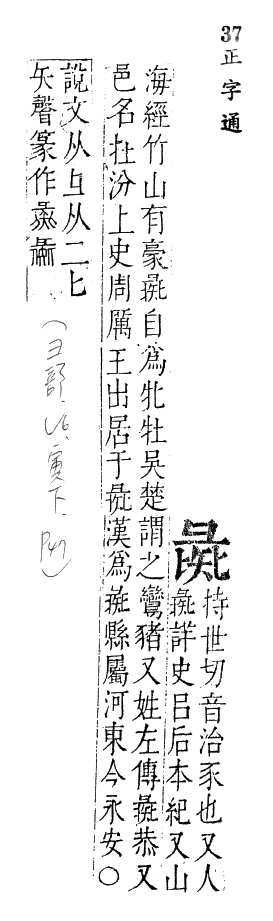 37
正字通
彘
持世切音治豕也又人
彘詳史呂后本紀又山
海經竹山有豪彘自爲牝牡吳楚謂之鸞豬又姓左傳彘恭又
邑名在汾上史周厲王出居于彘漢爲彘縣屬河東今永安○
說文从彑从二匕
矢聲篆作
(彐部.U6.寅下.P47)